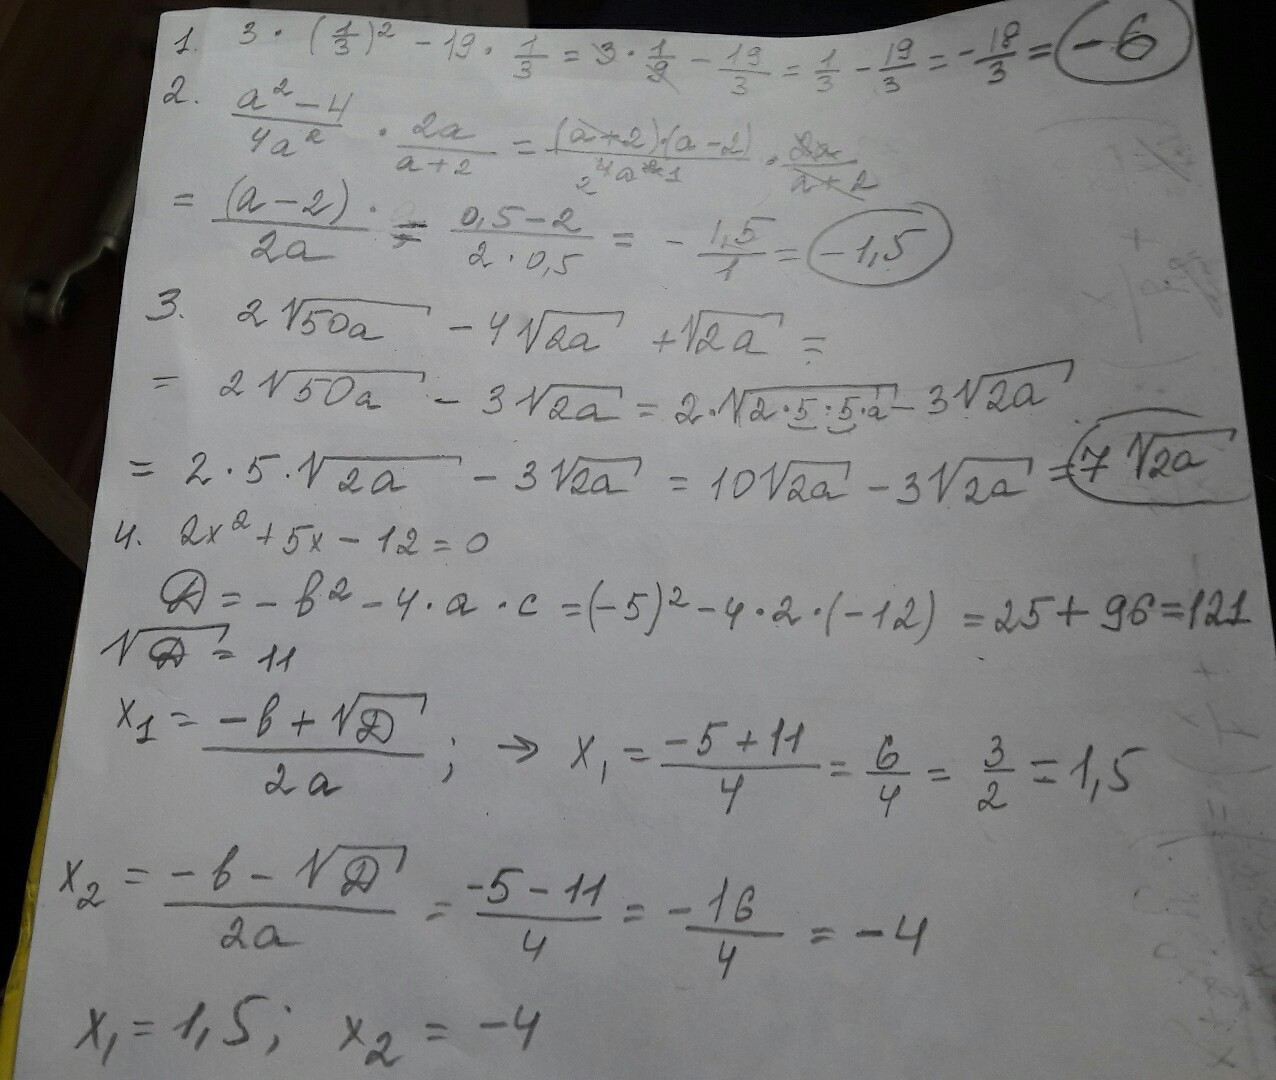 1. 3 · (1/3)² - 19 · 1/3 = 3 · 1/9 - 19/3 = 1/3 - 19/3 = -18/3 = -6
2. a² - 4/4a² · 2a/a + 2 = (a + 2)·(a - 2)/4a² · 2a/a + 2
= (a - 2)/2a = 0,5 - 2/2 · 0,5 = - 1,5/1 = -1,5
3. 2√50a - 4√2a + √2a =
= 2√50a - 3√2a = 2·√2·5·5·a - 3√2a
= 2·5·√2a - 3√2a = 10√2a - 3√2a = 7√2a
4. 2x² + 5x - 12 = 0
D = - b² - 4 · a · c = (-5)² - 4 · 2 · (-12) = 25 + 96 = 121
√D = 11
x₁ = -b + √D/2a ; → x₁ = -5 + 11/4 = 6/4 = 3/2 = 1,5
x₂ = -b - √D/2a = -5 - 11/4 = -16/4 = -4
x₁ = 1,5; x₂ = -4